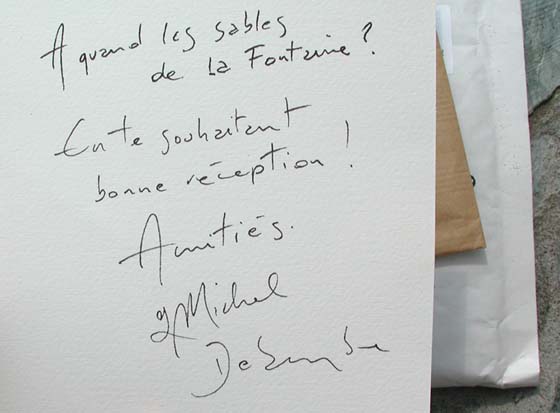 A quand les sables
de La Fontaine ?
En te souhaitant
bonne réception !
Amitiés.
Michel